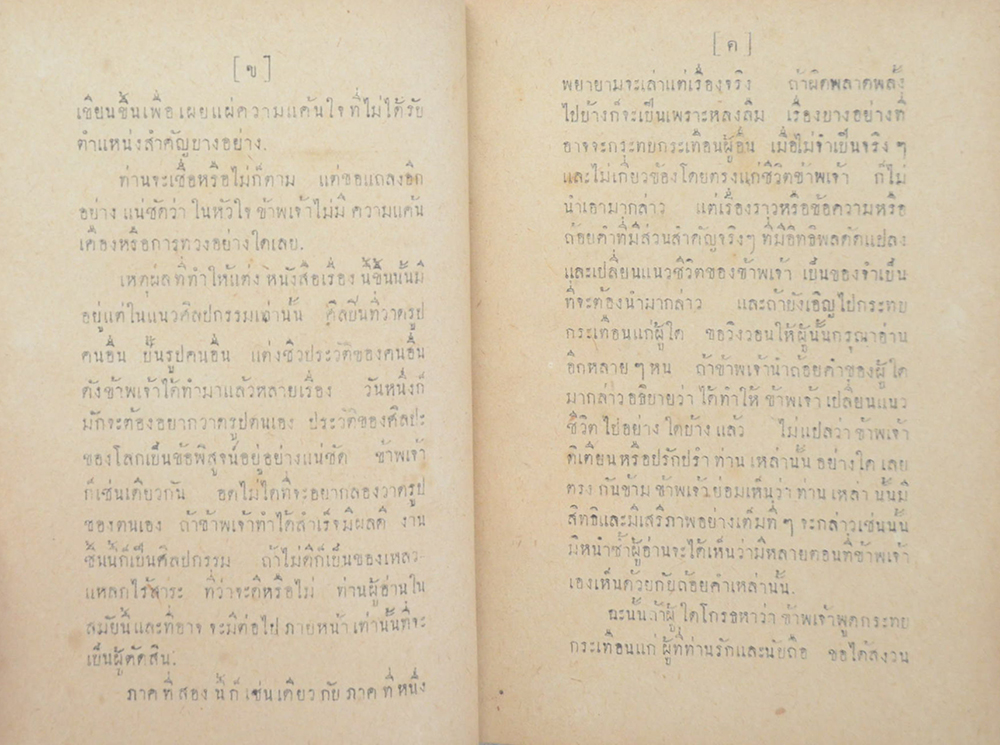 [ข]
เขียนขึ้นเพื่อเผยแผ่ความแค้นใจที่ไม่ได้รับ
ตำแหน่งสำคัญบางอย่าง.
ท่านจะเชื่อหรือไม่ก็ตาม แต่ขอแถลงอีก
อย่าง แน่ชัดว่า ในหัวใจ ข้าพเจ้าไม่มี ความแค้น
เคืองหรือการทวงอย่างใดเลย.
เหตุผลที่ทำให้แต่ง หนังสือเรื่อง นี้ขึ้นนั้นมี
อยู่แต่ในแนวศิลปกรรมเท่านั้น ศิลปินที่วาดรูป
คนอื่น ปั้นรูปคนอื่น แต่งชีวประวัติของคนอื่น
ดังข้าพเจ้าได้ทำมาแล้วหลายเรื่อง วันหนึ่งก็
มักจะต้องอยากวาดรูปตนเอง ประวัติของศิลปะ
ของโลกเป็นข้อพิสูจน์อยู่อย่างแน่ชัด ข้าพเจ้า
ก็เช่นเดียวกัน อดไม่ได้ที่จะอยากลองวาดรูป
ของตนเอง ถ้าข้าพเจ้าทำได้สำเร็จมีผลดี งาน
ชิ้นนี้ก็เป็นศิลปกรรม ถ้าไม่ดีก็เป็นของเหลว
แหลกไร้สาระ ที่ว่าจะดีหรือไม่ ท่านผู้อ่านใน
สมัยนี้ และที่อาจ จะมีต่อไป ภายหน้า เท่านั้นที่จะ
เป็นผู้ตัดสิน.
ภาค ที่ สอง นี้ ก็ เช่น เดียว กับ ภาค ที่ หนึ่ง
[ค]
พยายามจะเล่าแต่เรื่องจริง ถ้าผิดพลาดพลั้ง
ไปบ้างก็จะเป็นเพราะหลงลืม เรื่องบางอย่างที่
อาจจะกระทบกระเทือนผู้อื่น เมื่อไม่จำเป็นจริง ๆ
และไม่เกี่ยวข้องโดยตรงแก่ชีวิตข้าพเจ้า ก็ไม่
นำเอามากล่าว แต่เรื่องราวหรือข้อความหรือ
ถ้อยคำที่มีส่วนสำคัญจริงๆ ที่มีอิทธิพลดัดแปลง
และเปลี่ยนแนวชีวิตของข้าพเจ้า เป็นของจำเป็น
ที่จะต้องนำมากล่าว และถ้ายังเอิญไปกระทบ
กระเทือนแก่ผู้ใด ขอวิงวอนให้ผู้นั้นกรุณาอ่าน
อีกหลาย ๆ หน ถ้าข้าพเจ้านำถ้อยคำของผู้ใด
มากล่าว อธิบายว่า ได้ทำให้ ข้าพเจ้า เปลี่ยนแนว
ชีวิต ไป อย่าง ใดบ้าง แล้ว ไม่แปลว่า ข้าพเจ้า
ติเตียน หรือ ปรักปรำ ท่าน เหล่านั้น อย่างใด เลย
ตรง กันข้าม ข้าพเจ้า ย่อมเห็นว่า ท่าน เหล่า นั้นมี
สิทธิและมีเสรีภาพอย่างเต็มที่ ๆ จะกล่าวเช่นนั้น
มิหนำซ้ำผู้อ่านจะได้เห็นว่ามีหลายตอนที่ข้าพเจ้า
เองเห็นด้วยกับถ้อยคำเหล่านั้น.
ฉะนั้นถ้าผู้ใดโกรธหาว่า ข้าพเจ้าพูดกระทบ
กระเทือนแก่ ผู้ที่ท่านรักและนับถือ ขอได้สงวน